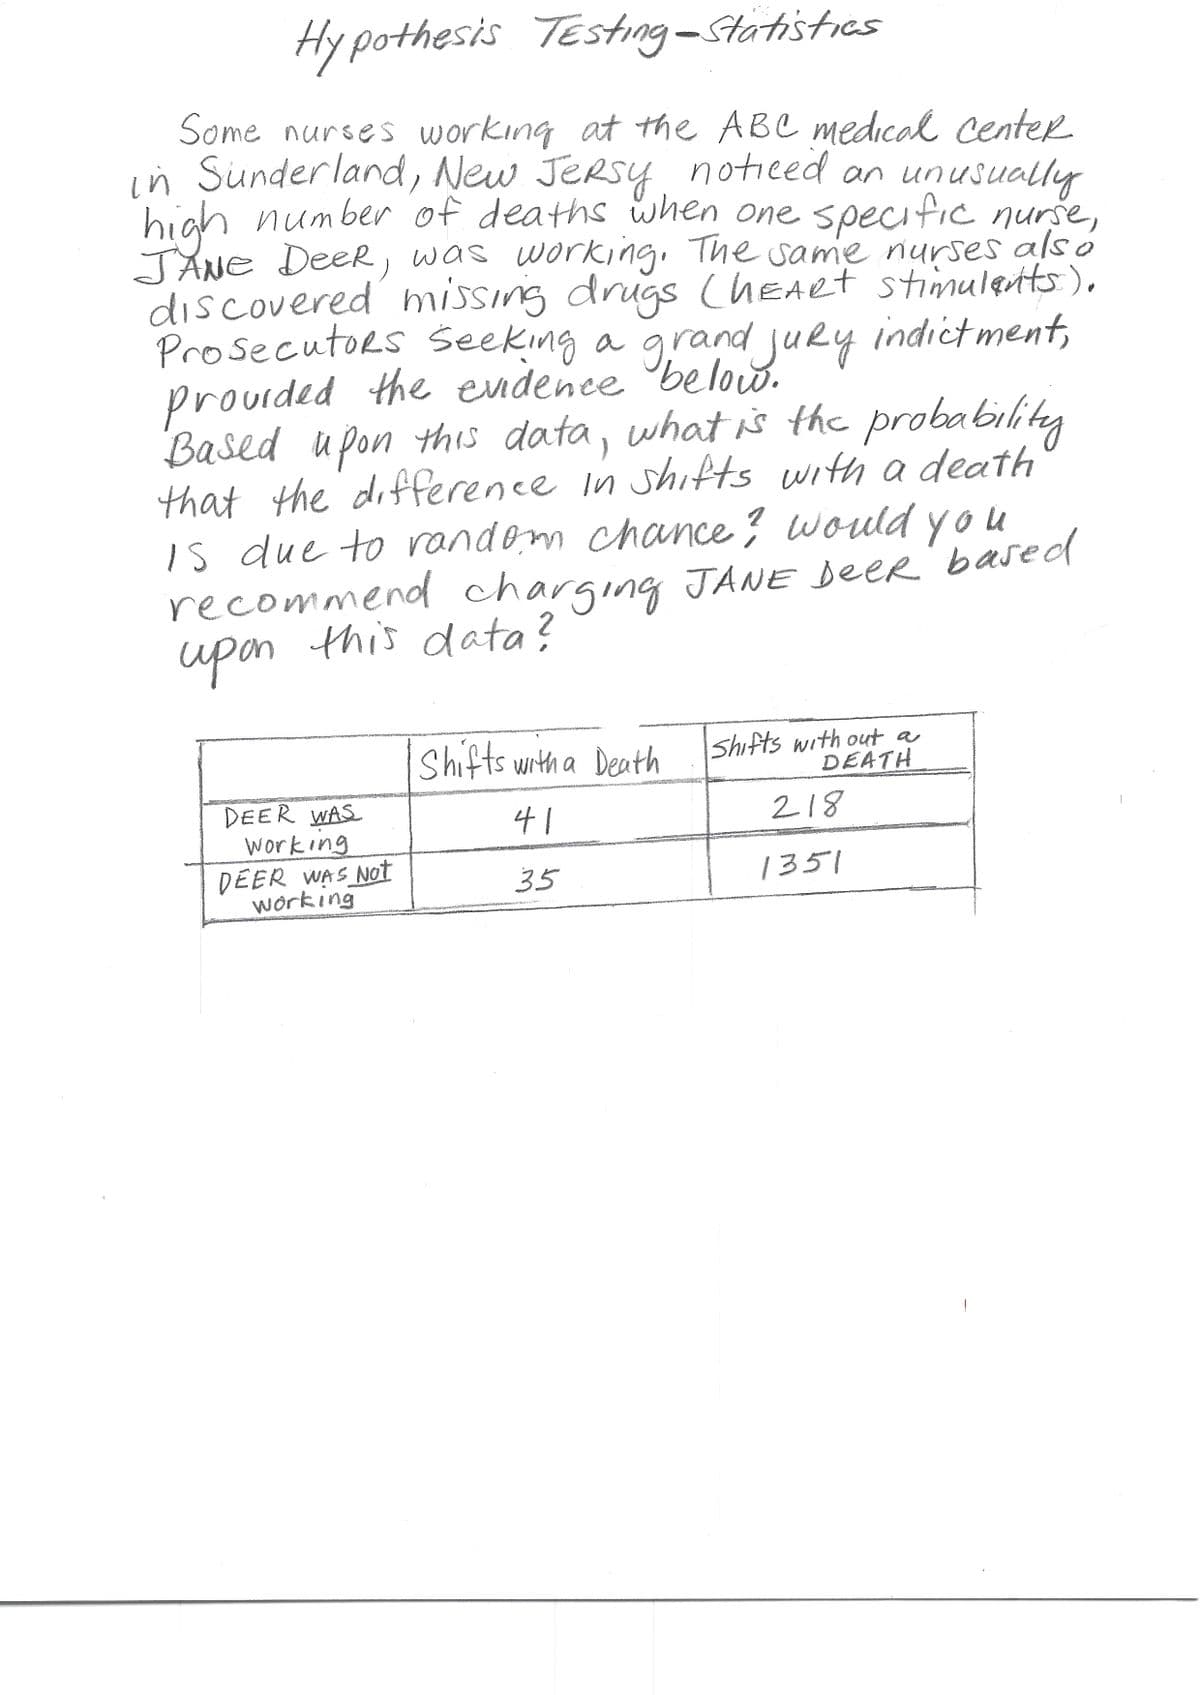 Hypothesis Testing - Statistics
Some nurses working at the ABC medical center
in Sunderland, New Jersy noticed an unusually
high number of deaths when one specific nurse,
JANE DEER, was working. The same nurses also
discovered missing drugs (heart stimulents).
Prosecutors seeking a grand jury indictment,
provided the evidence below.
Based upon this data, what is the probability
that the difference in shifts with a death
is due to random chance? would you
recommend charging JANE DEER based
upon this data?
Shifts with a Death
Shifts with out a
DEATH
DEER WAS
working
41
218
DEER WAS Not
working
35
1351